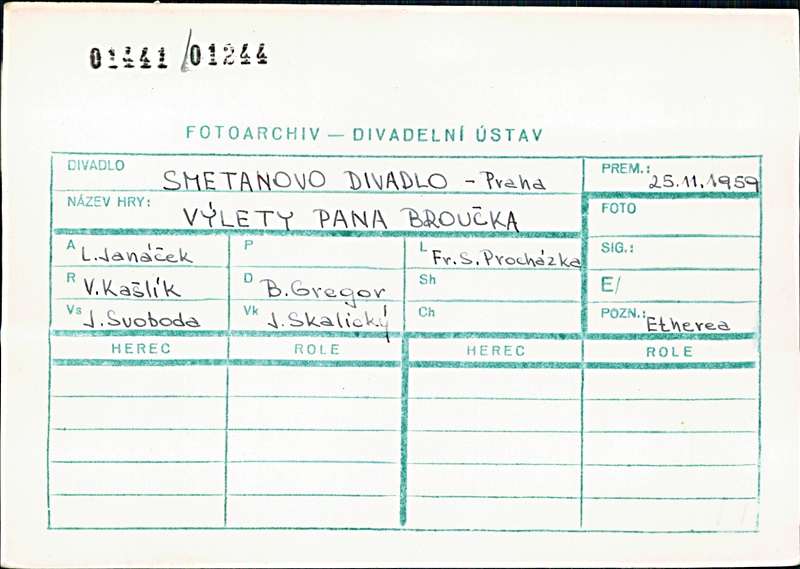 01441/01244
FOTOARCHIV — DIVADELNÍ ÚSTAV
DIVADLO SMETANOVO DIVADLO - Praha
PREM.: 25.11.1959
NÁZEV HRY: VÝLETY PANA BROUČKA
FOTO
A L.Janáček P L Fr.S.Procházka
SIG.:
R V.Kašlík D B.Gregor Sh
E/
Vs J.Svoboda Vk J.Skalický Ch
POZN.: Etherea
HEREC ROLE HEREC ROLE